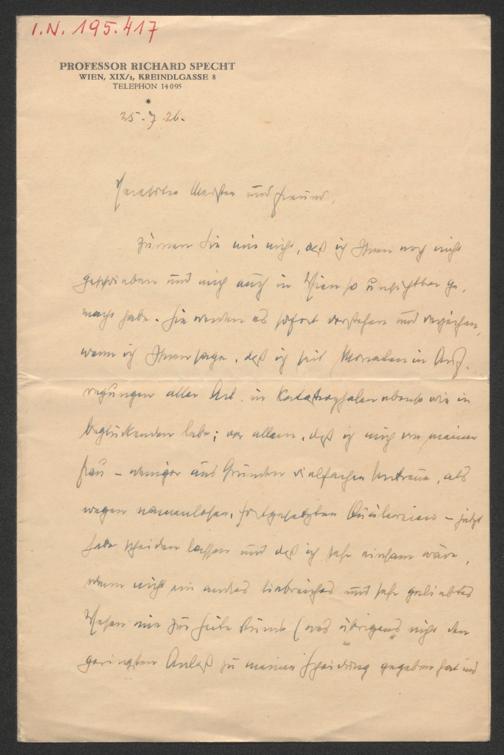 I.N. 195.417
PROFESSOR RICHARD SPECHT
WIEN, XIX/1, KREINDLGASSE 8
TELEPHON 14095
25. 7. 26.
Verehrter Meister und Freund,
zürnen Sie mir nicht, daß ich Ihnen noch nicht
geschrieben und mich auch in Wien so unsichtbar ge-
macht habe. Sie werden es sofort verstehen und verzeihen,
wenn ich Ihnen sage, daß ich seit Monaten in Auf-
regungen aller Art, in katastrophalen ebenso wie in
beglückenden lebe; vor allem, daß ich mich von meiner
Frau – weniger aus Gründen vielfachen Untreue, als
wegen namenloser, fortgesetzten Quälereien – jetzt
habe scheiden lassen und daß ich sehr einsam wäre,
wenn nicht ein andres liebreiches und sehr geliebtes
Wesen mir zur Seite stünde (das übrigens nicht den
geringsten Anlaß zu meiner Scheidung gegeben hat und